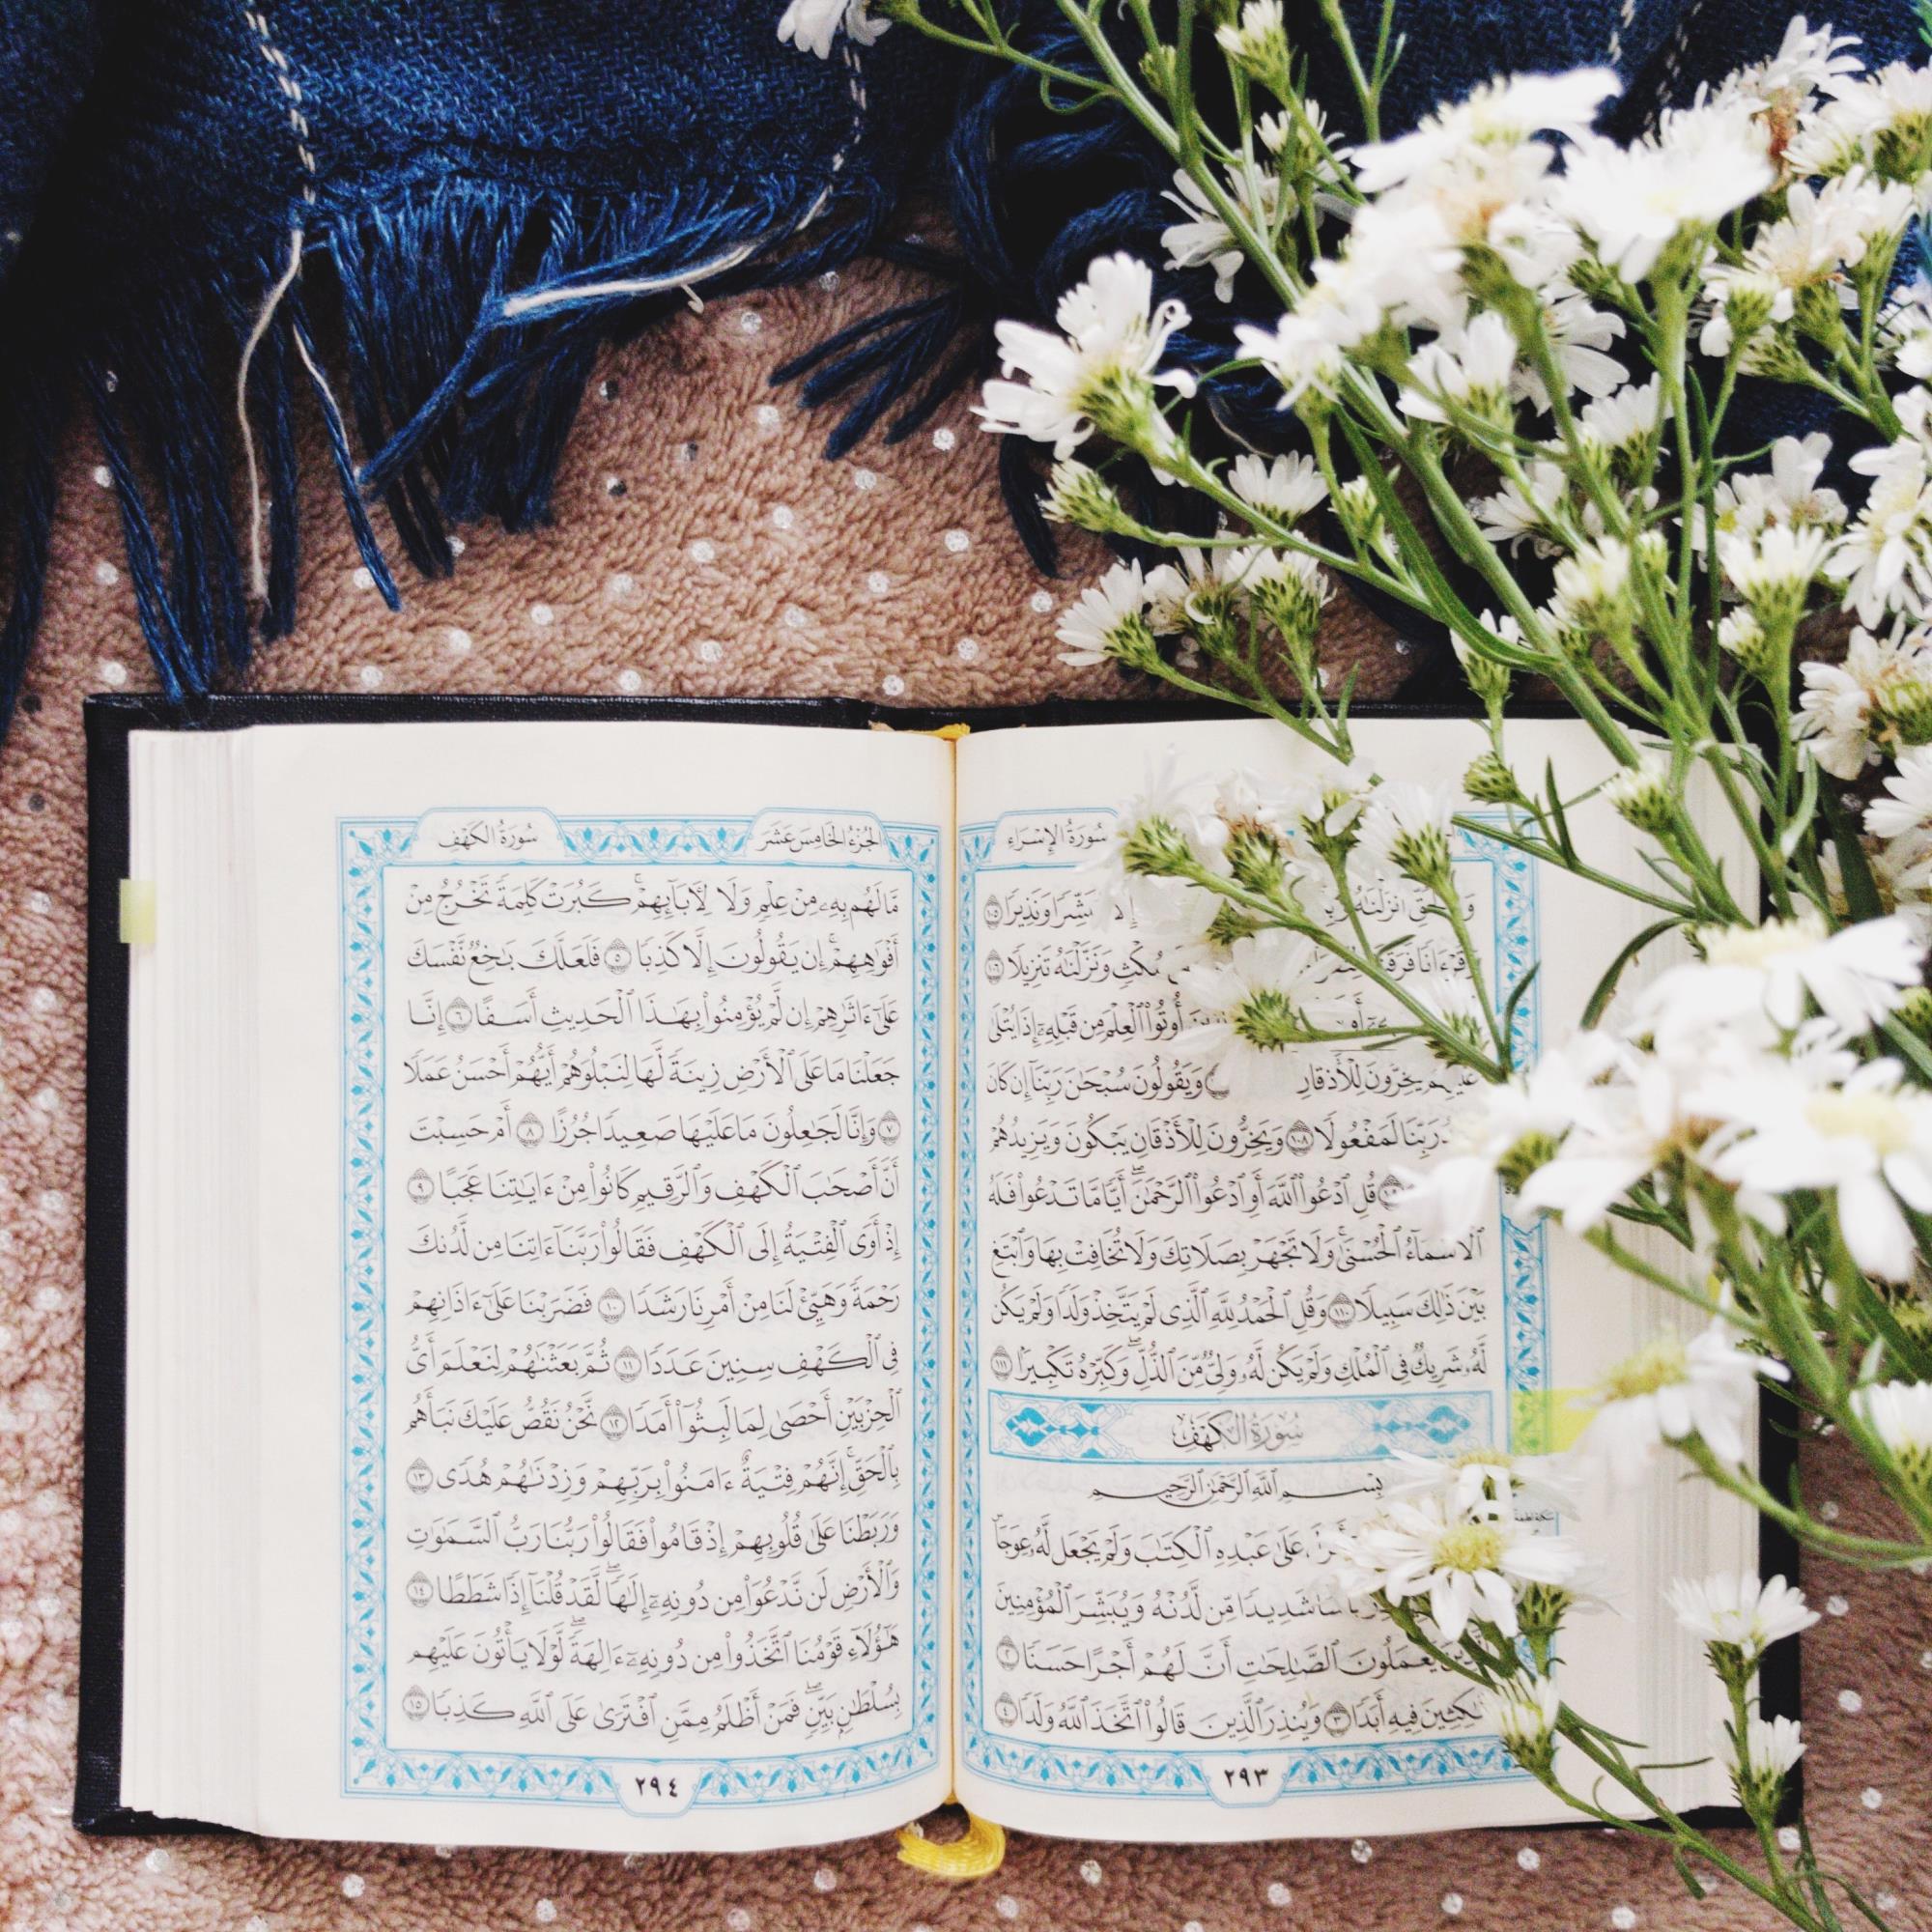 سُورَةُ الإِسْرَاءِ
إِلَّا مُبَشِّرًا وَنَذِيرًا ١٠٥
مُكْثٍ وَنَزَّلْنَٰهُ تَنزِيلًا ١٠٦
أُوتُوا۟ ٱلْعِلْمَ مِن قَبْلِهِۦٓ إِذَا يُتْلَىٰ
يَخِرُّونَ لِلْأَذْقَانِ وَيَقُولُونَ سُبْحَٰنَ رَبِّنَآ إِن كَانَ
رَبِّنَا لَمَفْعُولًا ١٠٨ وَيَخِرُّونَ لِلْأَذْقَانِ يَبْكُونَ وَيَزِيدُهُمْ
قُلِ ٱدْعُوا۟ ٱللَّهَ أَوِ ٱدْعُوا۟ ٱلرَّحْمَٰنَ ۖ أَيًّا مَّا تَدْعُوا۟ فَلَهُ
ٱلْأَسْمَآءُ ٱلْحُسْنَىٰ ۚ وَلَا تَجْهَرْ بِصَلَاتِكَ وَلَا تُخَافِتْ بِهَا وَٱبْتَغِ
بَيْنَ ذَٰلِكَ سَبِيلًا ١١٠ وَقُلِ ٱلْحَمْدُ لِلَّهِ ٱلَّذِى لَمْ يَتَّخِذْ وَلَدًا وَلَمْ يَكُن
لَّهُۥ شَرِيكٌ فِى ٱلْمُلْكِ وَلَمْ يَكُن لَّهُۥ وَلِىٌّ مِّنَ ٱلذُّلِّ ۖ وَكَبِّرْهُ تَكْبِيرًۢا ١١١
سُورَةُ الكَهْفِ
بِسْمِ ٱللَّهِ ٱلرَّحْمَٰنِ ٱلرَّحِيمِ
عَلَىٰ عَبْدِهِ ٱلْكِتَٰبَ وَلَمْ يَجْعَل لَّهُۥ عِوَجَا ۜ
شَدِيدًا مِّن لَّدُنْهُ وَيُبَشِّرَ ٱلْمُؤْمِنِينَ
يَعْمَلُونَ ٱلصَّٰلِحَٰتِ أَنَّ لَهُمْ أَجْرًا حَسَنًا ٢
مَّٰكِثِينَ فِيهِ أَبَدًا ٣ وَيُنذِرَ ٱلَّذِينَ قَالُوا۟ ٱتَّخَذَ ٱللَّهُ وَلَدًا ٤
٢٩٣
الجُزْءُ الخَامِسَ عَشَرَ
سُورَةُ الكَهْفِ
مَّا لَهُم بِهِۦ مِنْ عِلْمٍ وَلَا لِـَٔابَآئِهِمْ ۚ كَبُرَتْ كَلِمَةً تَخْرُجُ مِنْ
أَفْوَٰهِهِمْ ۚ إِن يَقُولُونَ إِلَّا كَذِبًا ٥ فَلَعَلَّكَ بَٰخِعٌ نَّفْسَكَ
عَلَىٰٓ ءَاثَٰرِهِمْ إِن لَّمْ يُؤْمِنُوا۟ بِهَٰذَا ٱلْحَدِيثِ أَسَفًا ٦ إِنَّا
جَعَلْنَا مَا عَلَى ٱلْأَرْضِ زِينَةً لَّهَا لِنَبْلُوَهُمْ أَيُّهُمْ أَحْسَنُ عَمَلًا
٧ وَإِنَّا لَجَٰعِلُونَ مَا عَلَيْهَا صَعِيدًا جُرُزًا ٨ أَمْ حَسِبْتَ
أَنَّ أَصْحَٰبَ ٱلْكَهْفِ وَٱلرَّقِيمِ كَانُوا۟ مِنْ ءَايَٰتِنَا عَجَبًا ٩
إِذْ أَوَى ٱلْفِتْيَةُ إِلَى ٱلْكَهْفِ فَقَالُوا۟ رَبَّنَآ ءَاتِنَا مِن لَّدُنكَ
رَحْمَةً وَهَيِّئْ لَنَا مِنْ أَمْرِنَا رَشَدًا ١٠ فَضَرَبْنَا عَلَىٰٓ ءَاذَانِهِمْ
فِى ٱلْكَهْفِ سِنِينَ عَدَدًا ١١ ثُمَّ بَعَثْنَٰهُمْ لِنَعْلَمَ أَىُّ
ٱلْحِزْبَيْنِ أَحْصَىٰ لِمَا لَبِثُوٓا۟ أَمَدًا ١٢ نَّحْنُ نَقُصُّ عَلَيْكَ نَبَأَهُم
بِٱلْحَقِّ ۚ إِنَّهُمْ فِتْيَةٌ ءَامَنُوا۟ بِرَبِّهِمْ وَزِدْنَٰهُمْ هُدًى ١٣
وَرَبَطْنَا عَلَىٰ قُلُوبِهِمْ إِذْ قَامُوا۟ فَقَالُوا۟ رَبُّنَا رَبُّ ٱلسَّمَٰوَٰتِ
وَٱلْأَرْضِ لَن نَّدْعُوَا۟ مِن دُونِهِۦٓ إِلَٰهًا ۖ لَّقَدْ قُلْنَآ إِذًا شَطَطًا ١٤
هَٰٓؤُلَآءِ قَوْمُنَا ٱتَّخَذُوا۟ مِن دُونِهِۦٓ ءَالِهَةً ۖ لَّوْلَا يَأْتُونَ عَلَيْهِم
بِسُلْطَٰنٍۭ بَيِّنٍ ۖ فَمَنْ أَظْلَمُ مِمَّنِ ٱفْتَرَىٰ عَلَى ٱللَّهِ كَذِبًا ١٥
٢٩٤